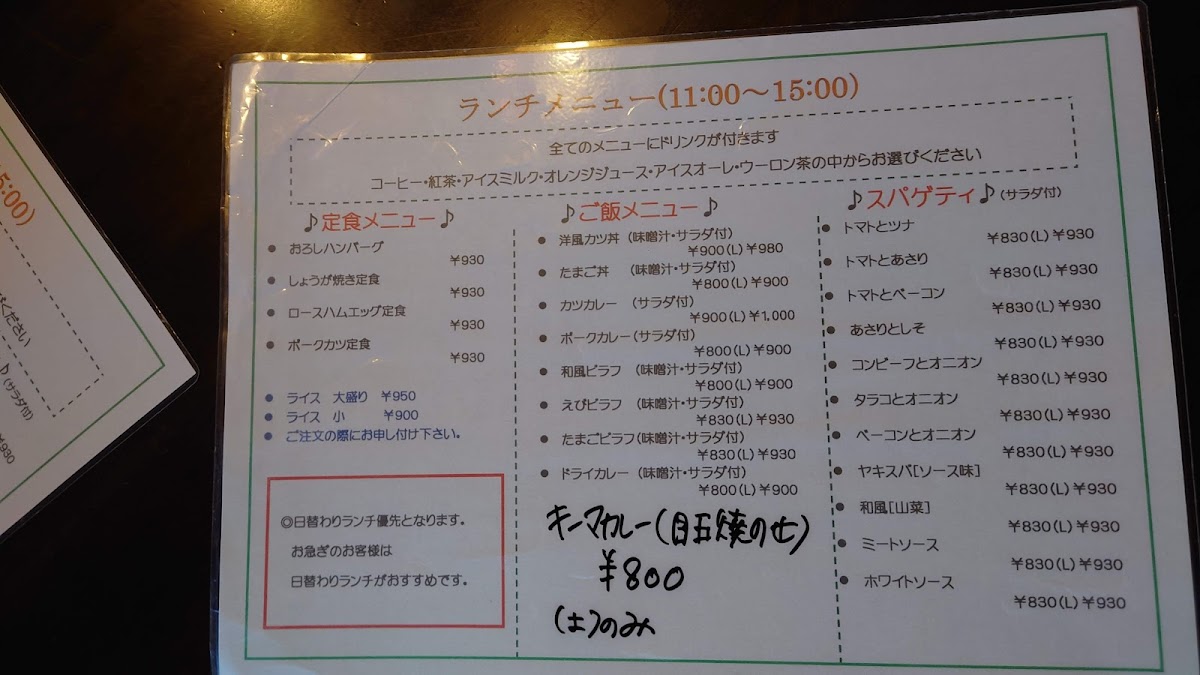 ランチメニュー(11:00～15:00)
全てのメニューにドリンクが付きます
コーヒー・紅茶・アイスミルク・オレンジジュース・アイスオーレ・ウーロン茶の中からお選びください
♪定食メニュー♪
● おろしハンバーグ
￥930
● しょうが焼き定食
￥930
● ロースハムエッグ定食
￥930
● ポークカツ定食
￥930
● ライス 大盛り ￥950
● ライス 小 ￥900
● ご注文の際にお申し付け下さい。
◎日替わりランチ優先となります。
お急ぎのお客様は
日替わりランチがおすすめです。
♪ご飯メニュー♪
● 洋風カツ丼（味噌汁・サラダ付）
￥900(L)￥980
● たまご丼 （味噌汁・サラダ付）
￥800(L)￥900
● カツカレー （サラダ付）
￥900(L)￥1,000
● ポークカレー（サラダ付）
￥800(L)￥900
● 和風ピラフ （味噌汁・サラダ付）
￥800(L)￥900
● えびピラフ （味噌汁・サラダ付）
￥830(L)￥930
● たまごピラフ（味噌汁・サラダ付）
￥830(L)￥930
● ドライカレー（味噌汁・サラダ付）
￥800(L)￥900
キーマカレー(目玉焼のせ)
￥800
(土)のみ
♪スパゲティ♪(サラダ付)
● トマトとツナ
￥830(L)￥930
● トマトとあさり
￥830(L)￥930
● トマトとベーコン
￥830(L)￥930
● あさりとしそ
￥830(L)￥930
● コンビーフとオニオン
￥830(L)￥930
● タラコとオニオン
￥830(L)￥930
● ベーコンとオニオン
￥830(L)￥930
● ヤキスパ[ソース味]
￥830(L)￥930
● 和風[山菜]
￥830(L)￥930
● ミートソース
￥830(L)￥930
● ホワイトソース
￥830(L)￥930
5:00)
ください
♪(サラダ付)
￥930